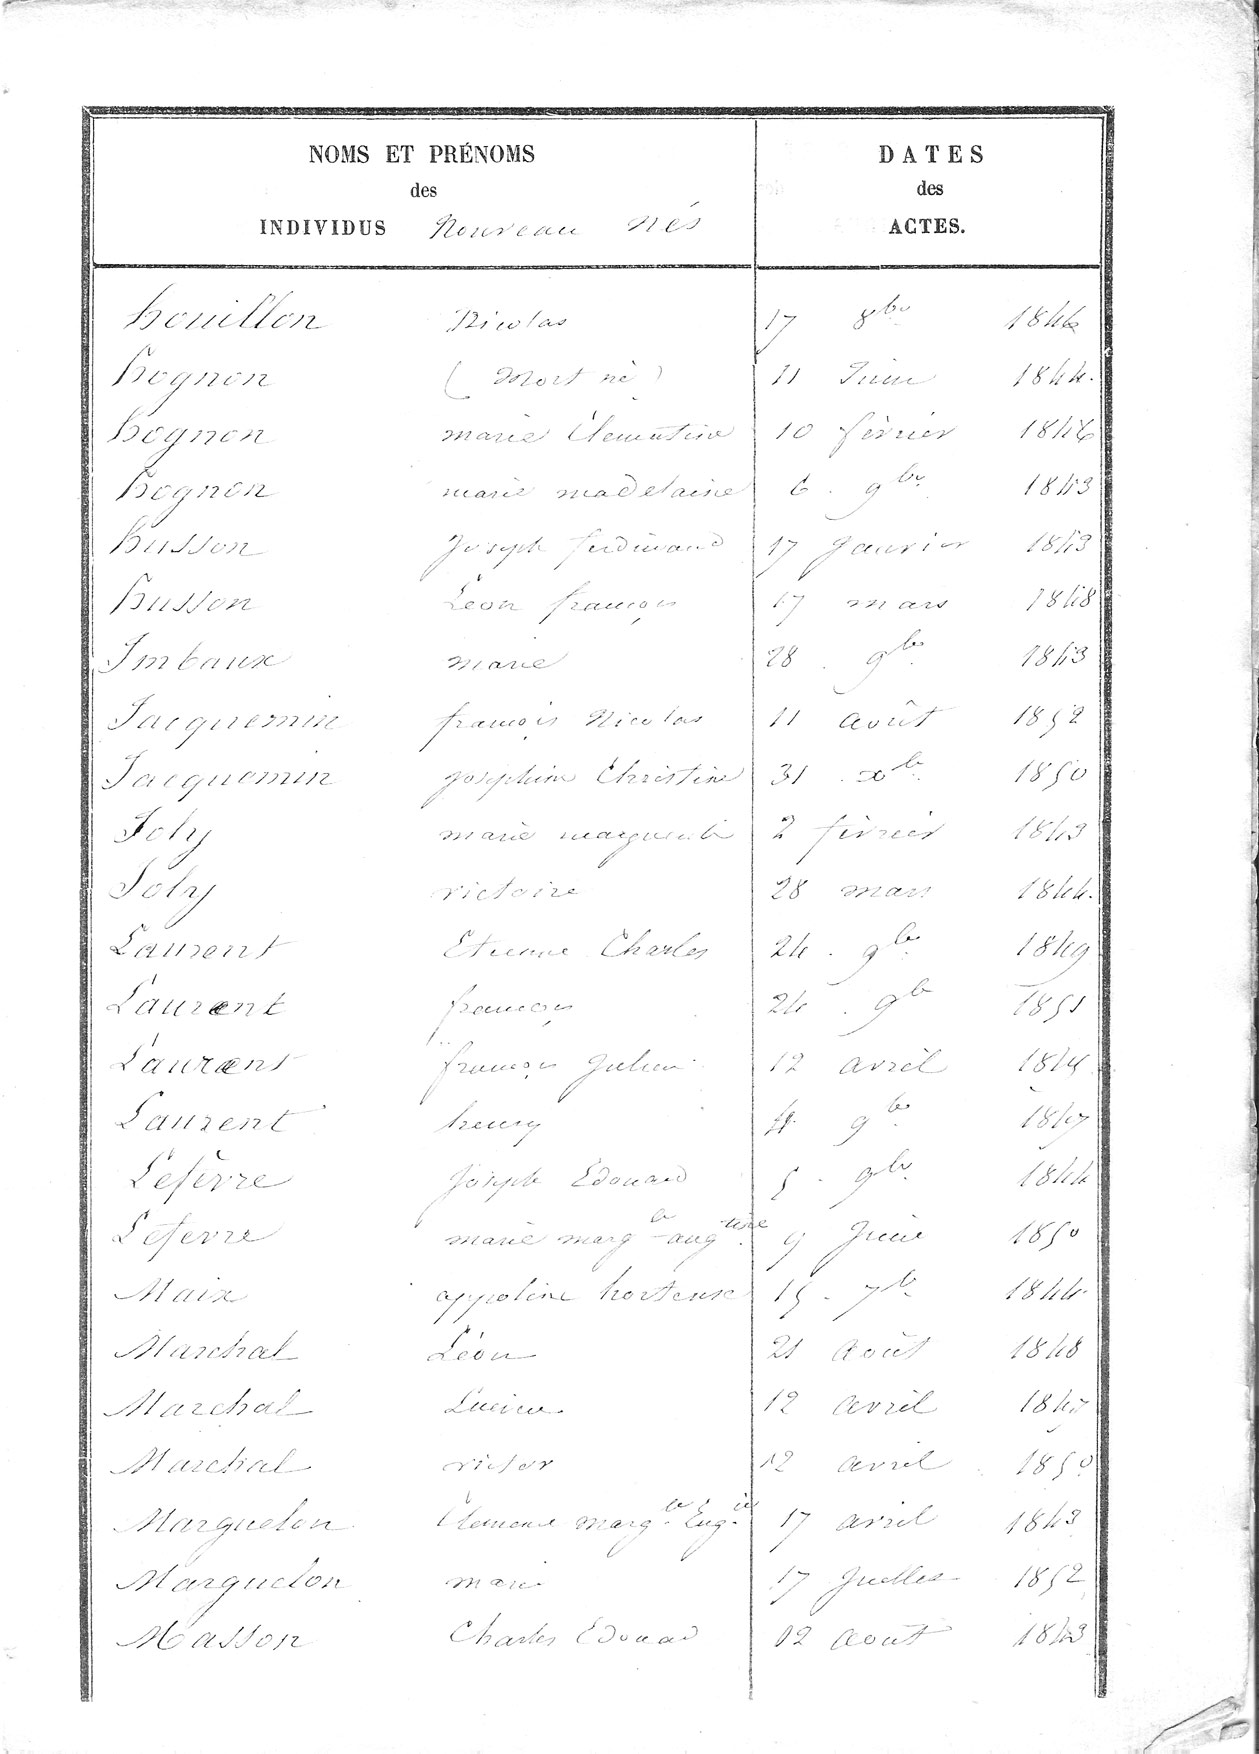 NOMS ET PRÉNOMS
des
INDIVIDUS Nouveau Nés
DATES
des
ACTES.
houillon Nicolas 17 8bre 1846
hognon (Mort né) 11 Juin 1844.
hognon marie Clementine 10 février 1846
hognon marie madelaine 6 . 9bre 1843
husson Joseph ferdinand 17 Janvier 1843
husson Léon françois 17 mars 1848
Imbaux marie 28 . 9bre 1843
Jacquemin françois Nicolas 11 août 1852
Jacquemin Joséphine Christine 31 . xbre 1850
Joly marie marguerite 2 février 1843
Joly victoire 28 mars 1844.
Laurent Etienne Charles 24 . 9bre 1849
Laurent françois 24 . 9bre 1851
Laurent françois Julien 12 avril
Laurent henry 4 9bre 1847
Lefèvre Joseph Edouard 5 . 9bre 1844
Lefevre marie margte augtine 9 Juin 1850
Maix appoline hortense 15 . 7bre 1844
Marchal Léon 21 Août 1848
Marchal Lucien 12 avril
Marchal victor 12 avril 1850
Marguelon Clemence margte Engie 17 avril 1843
Marguelon marie 17 Juellet 1852
Masson Charles Edouard 12 août 1843